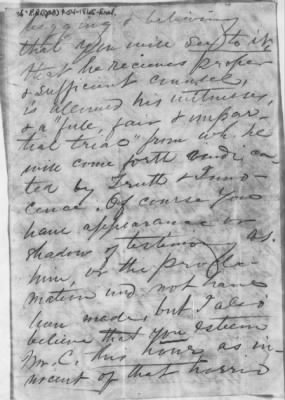 hoping & believing
that you will see to it,
that he recieves proper
& sufficient counsel,
is allowed his witnesses,
& a "full, fair & impar-
tial trial" from wh. he
will come forth vindica-
ted by Truth & Inno-
cence. Of course you
have appearance or
shadow of testimony as.
him, or the procla-
mation wd. not have
been made, but I also
believe that you esteem
Mr. C. this hour as in-
nocent of that horrid